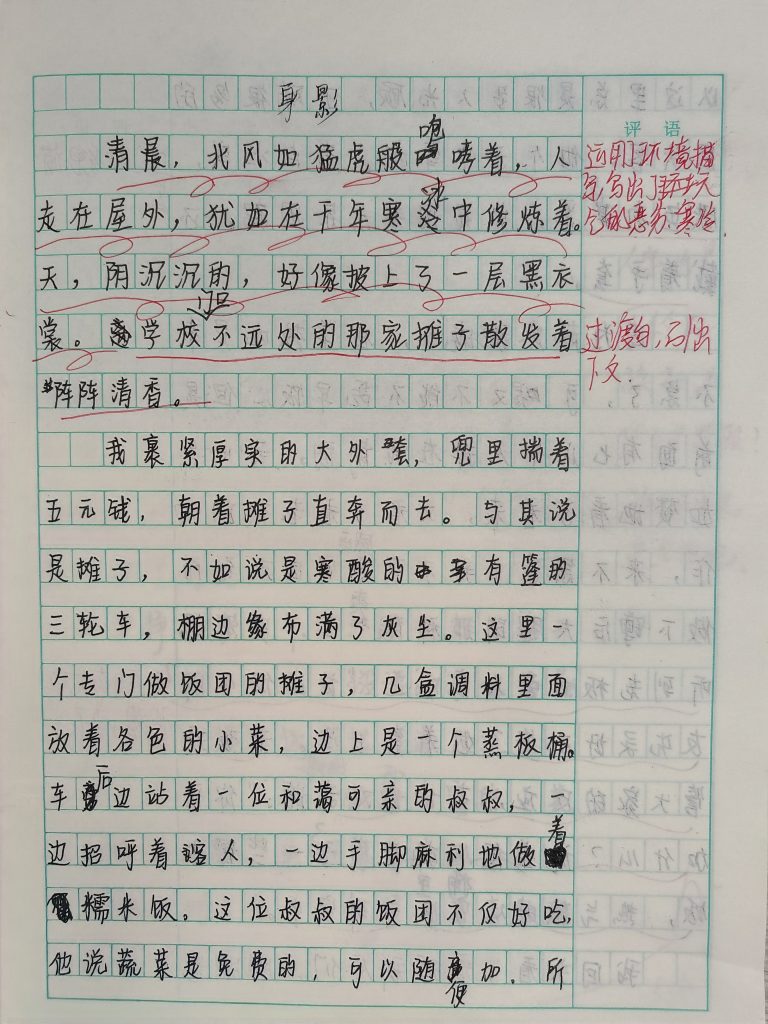 身影
评语
清晨，北风如猛虎般鸣哮着，人
走在屋外，犹如在千年寒冰中修炼着。
天，阴沉沉的，好像披上了一层黑衣
裳。离学校不远处的那家摊子散发着
阵阵清香。
我裹紧厚实的大外套，兜里揣着
五元钱，朝着摊子直奔而去。与其说
是摊子，不如说是寒酸的有篷的
三轮车，棚边缘布满了灰尘。这里一
个专门做饭团的摊子，几盒调料里面
放着各色的小菜，边上是一个蒸板桶。
车后边站着一位和蔼可亲的叔叔，一
边招呼着客人，一边手脚麻利地做着
糯米饭。这位叔叔的饭团不仅好吃，
他说蔬菜是免费的，可以随便加．所
运用环境描
写写出了
恶劣、寒冷
过渡句，引出
下文．